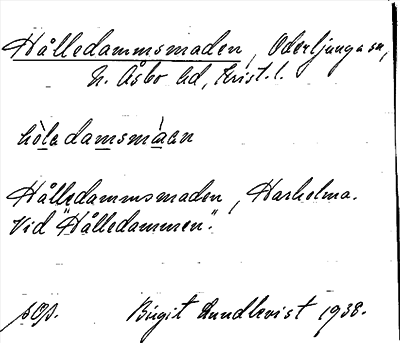 Hålledammsmaden, Oderljunga sn,
N. Åsbo hd, Krist. l.
hòledamsmàan
Hålledammsmaden, Harholma.
Vid "Hålledammen".
Birgit Lundkvist 1938.